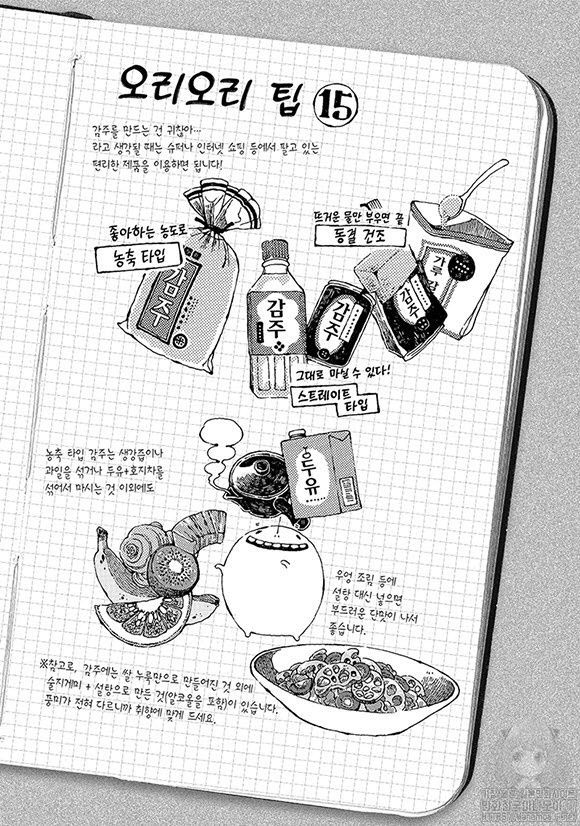 오리오리 팁 15
감주를 만드는 것 귀찮아…
라고 생각될 때는 슈퍼나 인터넷 쇼핑 등에서 팔고 있는
편리한 제품을 이용하면 됩니다!
좋아하는 농도로
농축 타입
감주
뜨거운 물만 부우면 끝
동결 건조
가루
감주
감주
감주
그대로 마실 수 있다!
스트레이트
타입
농축 타입 감주는 생강즙이나
과일을 섞거나 두유+호지차를
섞어서 마시는 것 이외에도
두유
우엉 조림 등에
설탕 대신 넣으면
부드러운 단맛이 나서
좋습니다.
※참고로, 감주에는 쌀 누룩만으로 만들어진 것 외에
술지게미 + 설탕으로 만든 것(알코올을 포함)이 있습니다.
풍미가 전혀 다르니까 취향에 맞게 드세요.